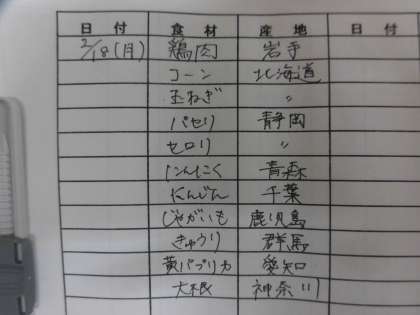 日 付 食 材 産 地 日 付
2/18(月) 鶏肉 岩手
コーン 北海道
玉ねぎ 〃
パセリ 静岡
セロリ 〃
にんにく 青森
にんじん 千葉
じゃがいも 鹿児島
きゅうり 群馬
黄パプリカ 愛知
大根 神奈川